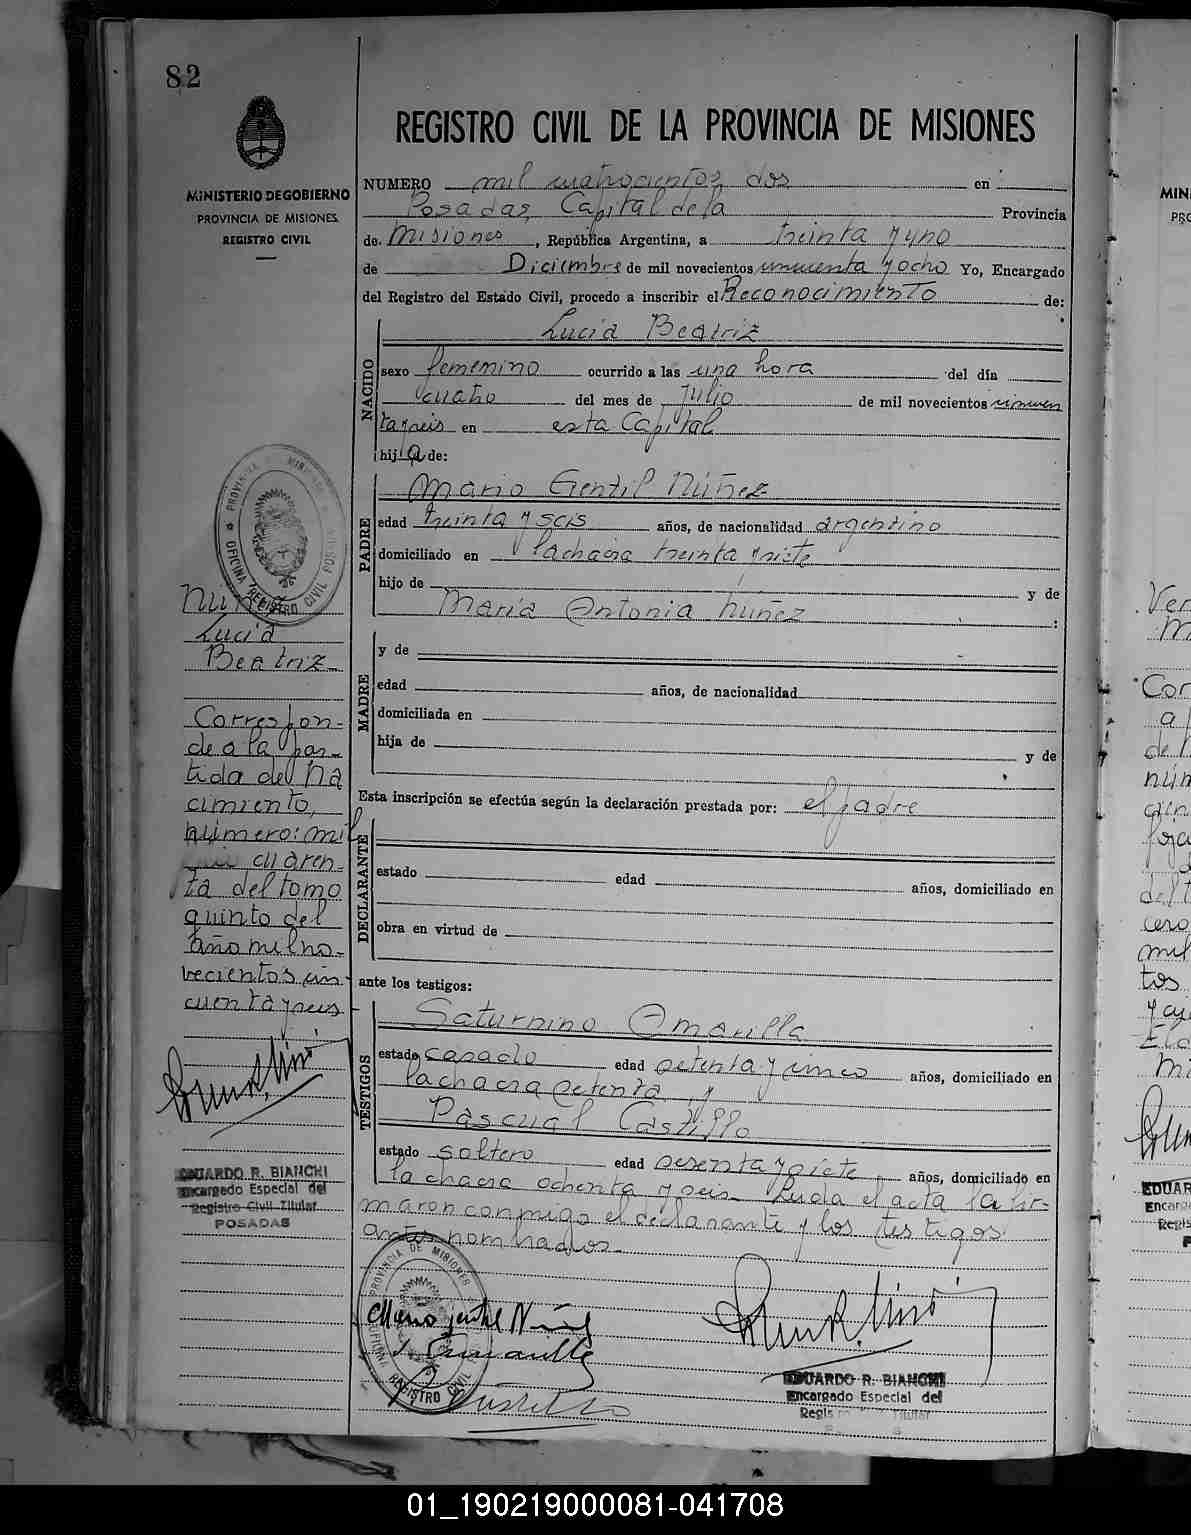 82
MINISTERIO DE GOBIERNO
PROVINCIA DE MISIONES
REGISTRO CIVIL
REGISTRO CIVIL DE LA PROVINCIA DE MISIONES
NUMERO mil cuatrocientos dos en
Posadas, Capital de la Provincia
de Misiones, República Argentina, a treinta y uno
de Diciembre de mil novecientos cincuenta y ocho Yo, Encargado
del Registro del Estado Civil, procedo a inscribir el Reconocimiento de:
NACIDO
Lucia Beatriz
sexo femenino ocurrido a las una hora del día
cuatro del mes de Julio de mil novecientos cincuen
ta y seis en esta Capital
hija de:
PADRE
Mario Gentil Núñez
edad treinta y seis años, de nacionalidad argentino
domiciliado en la chacra treinta y siete
hijo de y de
María Antonia Núñez
MADRE
y de
edad años, de nacionalidad
domiciliada en
hija de y de
Esta inscripción se efectúa según la declaración prestada por: el padre
DECLARANTE
estado edad años, domiciliado en
obra en virtud de
ante los testigos:
TESTIGOS
Saturnino Amarilla
estado casado edad setenta y cinco años, domiciliado en
la chacra setenta y
Pascual Castillo
estado soltero edad sesenta y siete años, domiciliado en
la chacra ochenta y seis. Leida el acta la fir-
maron conmigo el declarante y los testigos
antes nombrados.
Mario Gentil Núñez
EDUARDO R. BIANCHI
Encargado Especial del
Titular
PROVINCIA DE MISIONES
OFICINA REGISTRO CIVIL
Núñez
Lucia
Beatriz
Correspon-
de a la par-
tida de Na
cimiento,
número: mil
cuaren-
ta del tomo
quinto del
año mil no-
vecientos cin-
cuenta y seis
EDUARDO R. BIANCHI
Encargado Especial del
Registro Civil Titular
POSADAS
MIN
Ver
M
Cor
a
de
núm
foja
del t
cero
mil
tos
EDUAR
Encarg
Regis
01_190219000081-041708